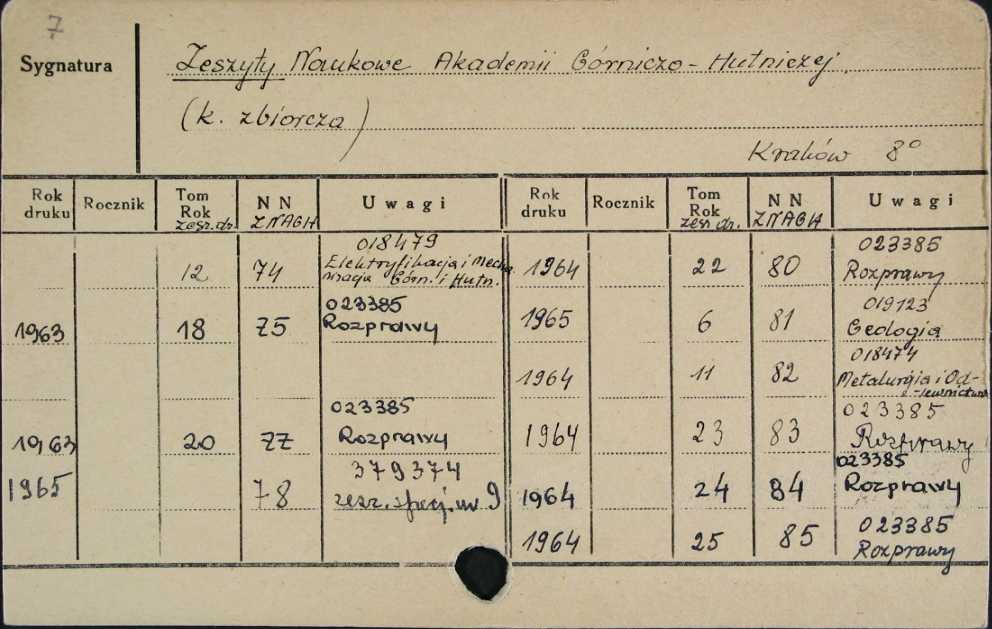 7
Sygnatura
Zeszyty Naukowe Akademii Górniczo-Hutniczej
(k. zbiorcza)
Kraków 8°
Rok druku Rocznik Tom Rok zesz. dr. N N ZNAGH Uwagi
12 74 018479 Elektryfikacja i Mecha-
nizacja Górn. i Hutn.
1963 18 75 023385 Rozprawy
1963 20 77 023385 Rozprawy
1965 78 379374
zesz. specj. nr 9
Rok druku Rocznik Tom Rok zesz. dr. N N ZNAGH Uwagi
1964 22 80 023385 Rozprawy
1965 6 81 019123 Geologia
1964 11 82 018474 Metalurgia i Od-
lewnictwo
1964 23 83 023385 Rozprawy
1964 24 84 023385 Rozprawy
1964 25 85 023385 Rozprawy